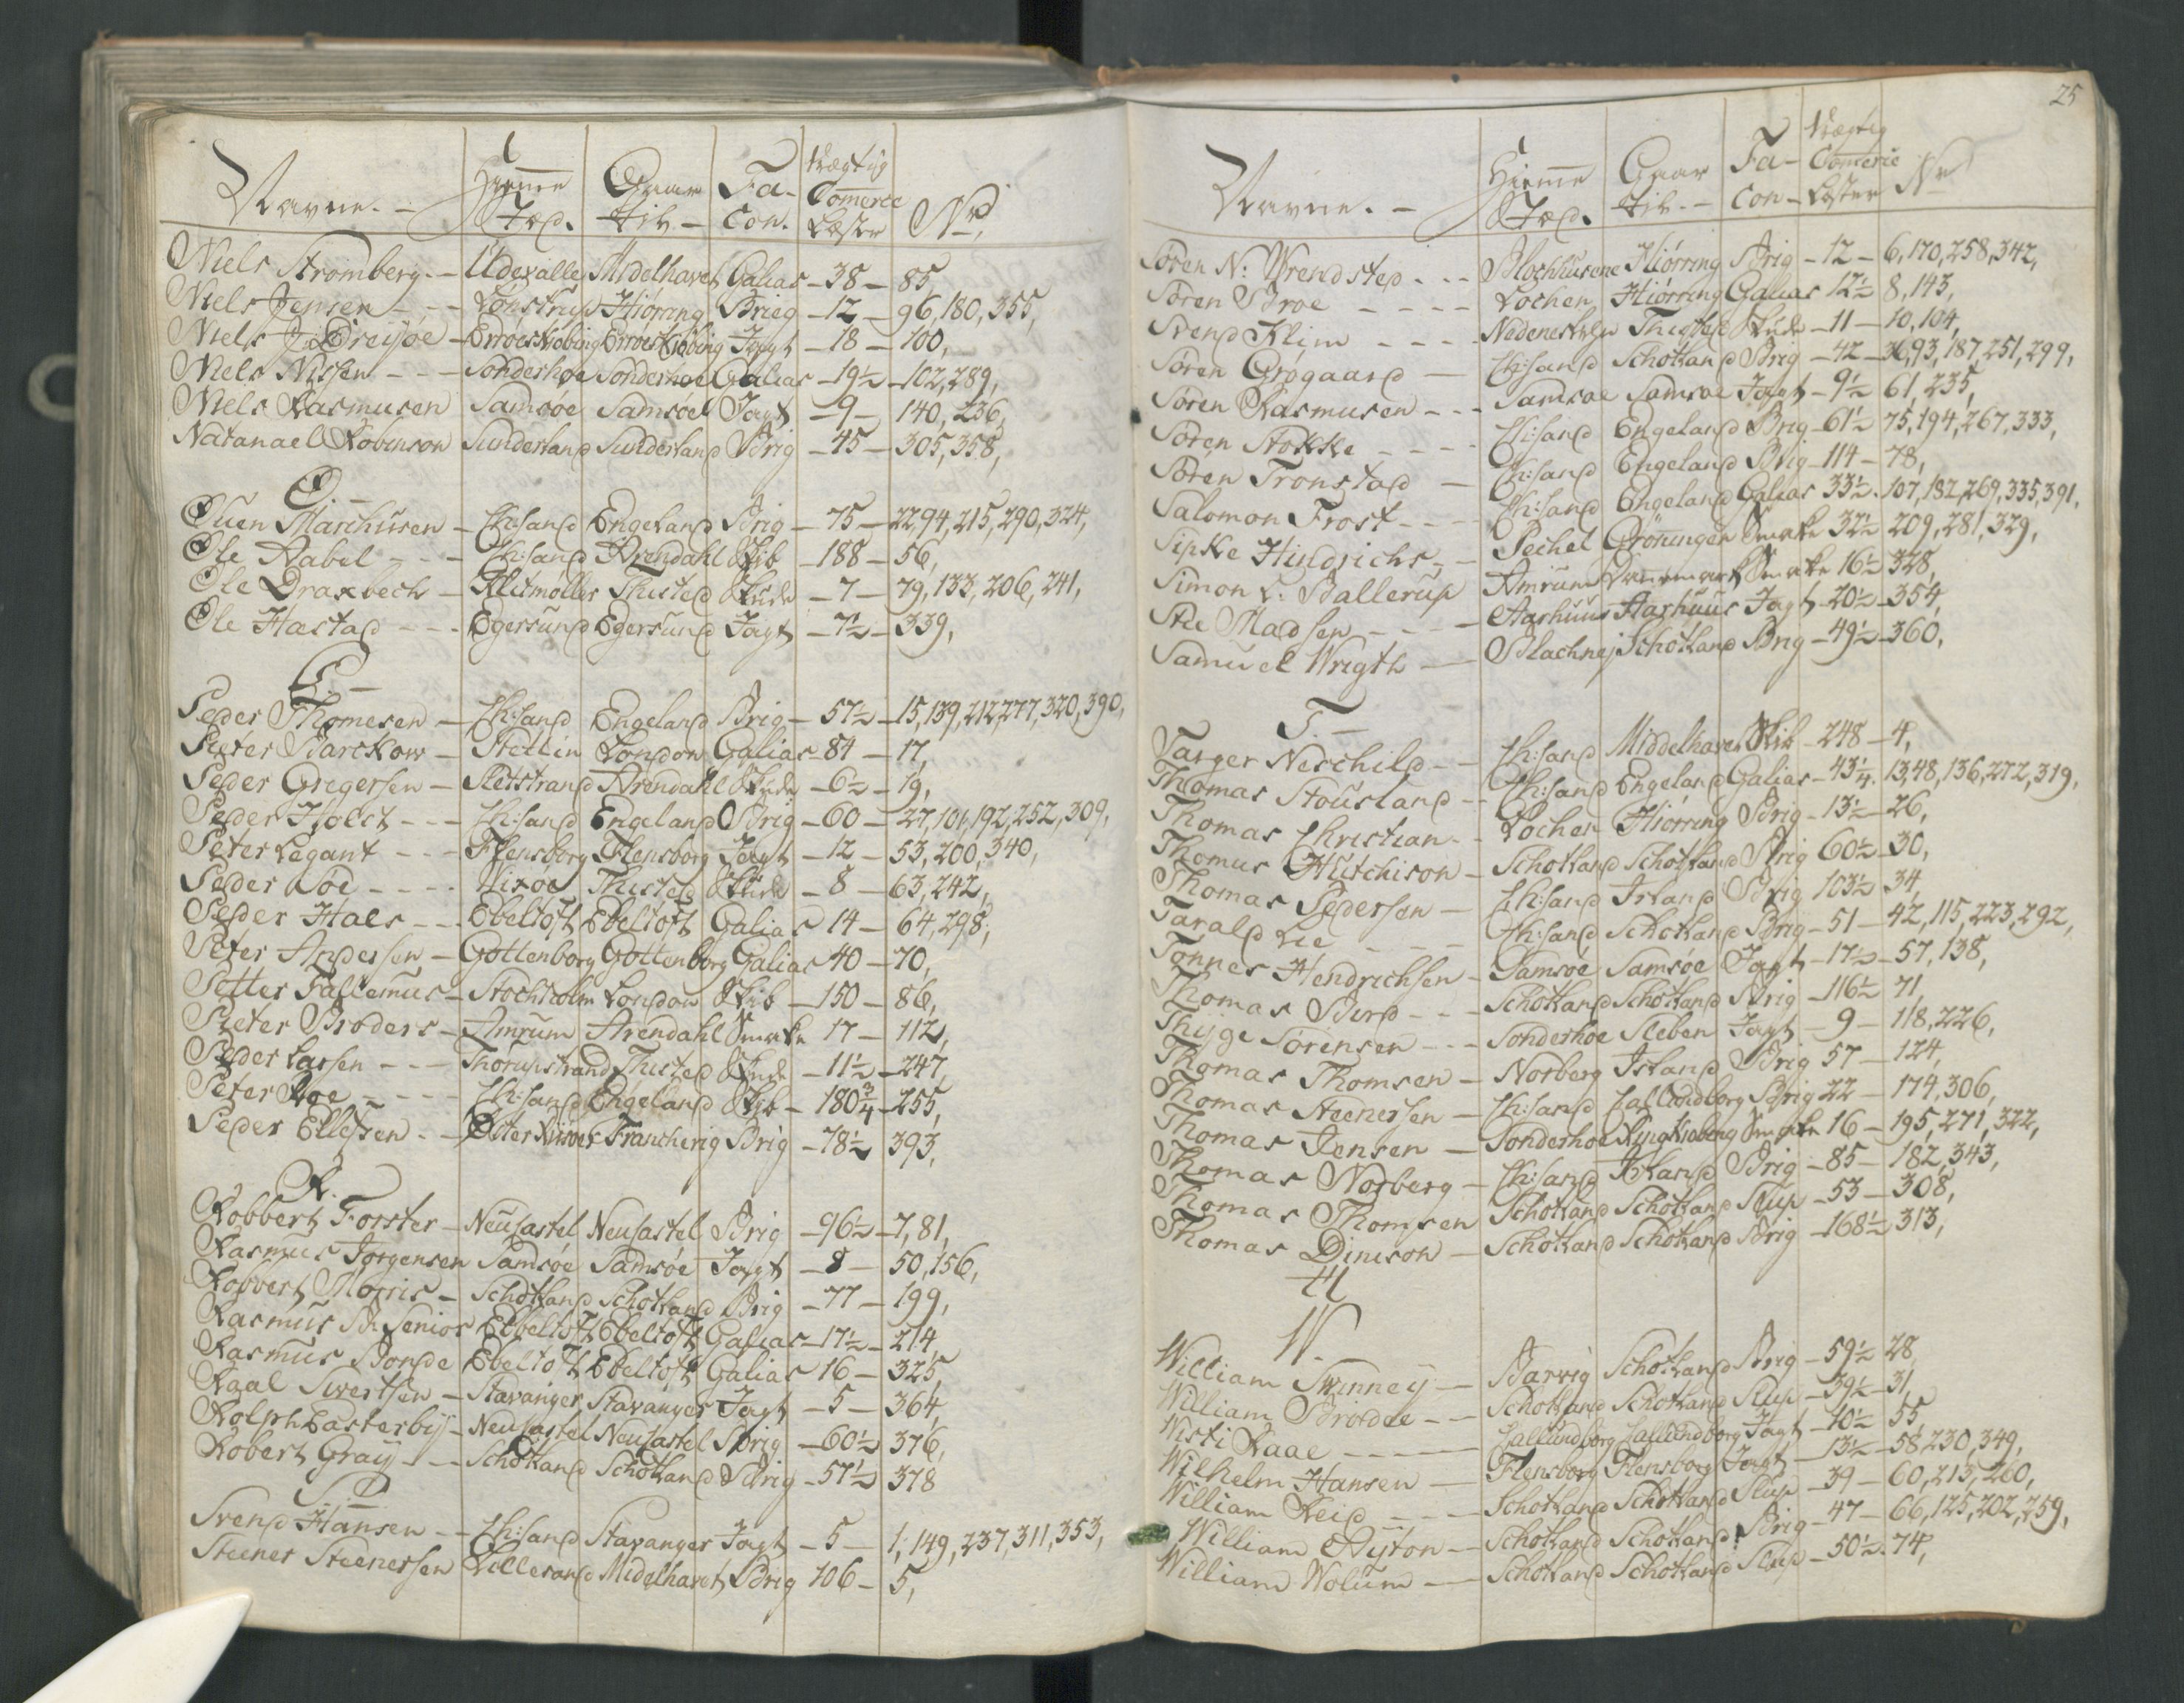 Navne. - Hjemme Gaar Fa- Drægtig
Sted. til. - Con. Comerce Læster No,
Niels Stromberg. - Udevalle Midelhavet Galias - 38 - 85,
Niels Jensen - - - Lønstrup Hiørring Brieg - 12 - 96, 180, 355,
Niels J: Dreijoe - Erroeskiøbing Erroeskiøbing Jagt - 18 - 100,
Niels Nissen - - - Sonderhoe Sonderhoe Galias - 19½ - 102, 289,
Niels Rasmusen Samsøe Samsøe Jagt - 9 - 140, 236,
Natanael Robinson Sunderland Sunderland Brig - 45 - 305, 358,
O. -
Ouen Marchusen - Ch:sand Engeland Brig - 75 - 22, 94, 215, 290, 324,
Ole Rabel - - - Ch:sand Arendahl Skib - 188 - 56,
Ole Draxbech - Klitmøller Thisted Skude - 7 - 79, 133, 206, 241,
Ole Hæstad - - - Egersund Egersund Jagt - 7½ - 339,
P. -
Peder Thomesen - Ch:sand Engeland Brig - 57½ - 15, 139, 212, 277, 320, 390,
Pieter Barckow - Stettin London Galias - 84 - 17,
Peder Gregersen - Sletstrand Arendahl Skude - 6½ - 19,
Peder Holct - - - Ch:sand Engeland Brig - 60 - 27, 101, 192, 252, 309,
Peter Legant - - - Flensborg Flensborg Jagt - 12 - 53, 200, 340,
Peder Søe - - - - Vixøe Thisted Skude - 8 - 63, 242,
Peder Hals - - - Ebeltoft Ebeltoft Galias 14 - 64, 298,
Peter Andersen - Gottenborg Gottenborg Galias 40 - 70,
Petter Fallemus - Stochholm London Skib - 150 - 86,
Pieter Broders - Amrum Arendahl Smake 17 - 112,
Peder Larsen - - - Thorupstrand Thisted Skude - 11½ - 247,
Peter Roe - - - - Ch:sand Engeland Skib - 180¾ - 255,
Peder Ellefsen - - Østerriisøer Francherig Brig - 78½ 393,
R.
Robbert Forster - Neucastel Neucastel Brig - 96½ - 7, 81,
Rasmus Jørgensen Samsøe Samsøe Jagt - 8 - 50, 156,
Robbert Morris - Schotland Schotland Brig - 77 - 199,
Rasmus Senior Ebeltoft Ebeltoft Galias - 17½ - 214,
Rasmus Bonde Ebeltoft Ebeltoft Galias 16 - 325,
Raal Sivertsen - Stavanger Stavanger Jagt - 5 - 364,
Rolph Easterbij - Neucastel Neucastel Brig - 60½ 376,
Robert Graij - - Schotland Schotland Brig - 57½ 378
S. -
Svend Hansen - - Ch:sand Stavanger Jagt - 5 - 1, 149, 237, 311, 353,
Steener Steenersen Lillesand Midelhavet Brig 106 - 5,
25
Navne. - Hiemme Gaar Fa- Drægtig
Sted. til. - Con - Comerce Læster No
Søren N: Wrendsted - - - Blochhusene Hiørring Brig - 12 - 6, 170, 258, 342,
Søren Broe - - - - Lochen Hiørring Galias 12½ 8, 143,
Svend Klim - - - - Thisted Skude - 11 - 10, 104,
Søren Grøgaard - Ch:sand Schotland Brig - 42 - 36, 93, 187, 251, 299,
Søren Rasmusen - - - Samsøe Samsøe Jagt - 9½ 61, 235,
Søren Stokke - - - - Ch:sand Engeland Brig - 61½ 75, 194, 267, 333,
Søren Tronstad - Ch:sand Engeland Brig - 114 - 78,
Salomon Frost - - - Ch:sand Engeland Galias 33½ . 107, 182, 269, 335, 391,
Sipke Hindrichs - - Pechel Grøningen Smake 32½ 209, 281, 329,
Simon L: Ballerup Amrum Danemark Smake 16½ 328,
Stie Madsen - - - - Aarhuus Aarhuus Jagt - 20½ - 354,
Samuel Wrigth - - Blachnej Schotland Brig - 49½ - 360,
T. -
Targer Neschild - - Ch:sand Middelhavet Skib - 248 - 4,
Thomas Stousland - - Ch:sand Engeland Galias - 43¼ - 13, 48, 136, 272, 319,
Thomas Christian - - Lochen Hiørring Brig - 13½ - 26,
Thomus Hutchison - Schotland Schotland Brig 60½ - 30,
Thomas Pedersen - Ch:sand Irland Brig 103½ 34,
Tarald Lie - - - Ch:sand Schotland Brig - 51 - 42, 115, 223, 292,
Tønnes Hendrichsen - Samsøe Samsøe Jagt - 17½ - 57, 138,
Thomas Burd - - - Schotland Schotland Brig - 116½ 71
Thijge Sørensen - - - Sonderhoe Sleben Jagt - 9 - 118, 226,
Thomas Thomsen - Norberg Island Brig 57 - 124,
Thomas Steenersen - Ch:sand Callundborg Brig 22 - 174, 306,
Thomas Jensen - Sonderhoe Ringkiøbing Smake 16 - 195, 271, 322,
Thomas Norberg - Ch:sand Irland Brig - 85 - 182, 343,
Thomas Thomsen Schotland Schotland Slup - 53 - 308,
Thomas Dineson - Schotland Schotland Brig - 168½ 313,
U
W. -
William Swinneij - Barvig Schotland Brig - 59½ 28,
William Brodee - - Schotland Schotland Slup - 39½ - 31,
Wisti Kaae - - - - Callundborg Callundborg Jagt - 10½ 55,
Wilhelm Hansen - Flensborg Flensborg Jagt - 13½ - 58, 230, 349,
William Reid - - - Schotland Schotland Slup - 39 - 60, 213, 260,
William Aijton - Schotland Schotland Brig - 47 - 66, 125, 202, 259,
William Wolum - Schotland Schotland Slup - 50½ . 74,